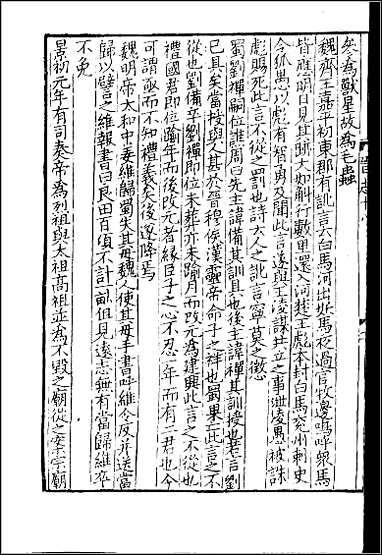 參為獸星故為毛蟲
魏齊王嘉平初東郡有訛言云白馬河出妖馬夜過官牧邊鳴呼眾馬
皆應明日見其跡大如斛行數里還入河楚王彪本封白馬兗州刺史
令狐愚以彪有智勇及聞此言遂與王淩謀共立之事泄淩愚被誅
彪賜死此言不從之罰也詩云人之訛言寧莫之懲
蜀劉禪嗣位譙周曰先主諱備其訓具也後主諱禪其訓授也若言劉
已具矣當授與人甚於晉穆侯漢靈帝命子之祥也蜀果亡此言之不
從也劉備卒劉禪即位未葬亦未踰月而改元為建興此言之不從也
禮國君即位踰年而後改元者緣臣子之心不忍一年而有二君也今
可謂亟而不知禮義矣後遂降焉
魏明帝太和中姜維歸蜀失其母魏人使其母手書呼維令反并送當
歸以譬之維報書曰良田百頃不計一畝但見遠志無有當歸維卒
不免
景初元年有司奏帝為烈祖與太祖高祖並為不毀之廟從之案宗廟